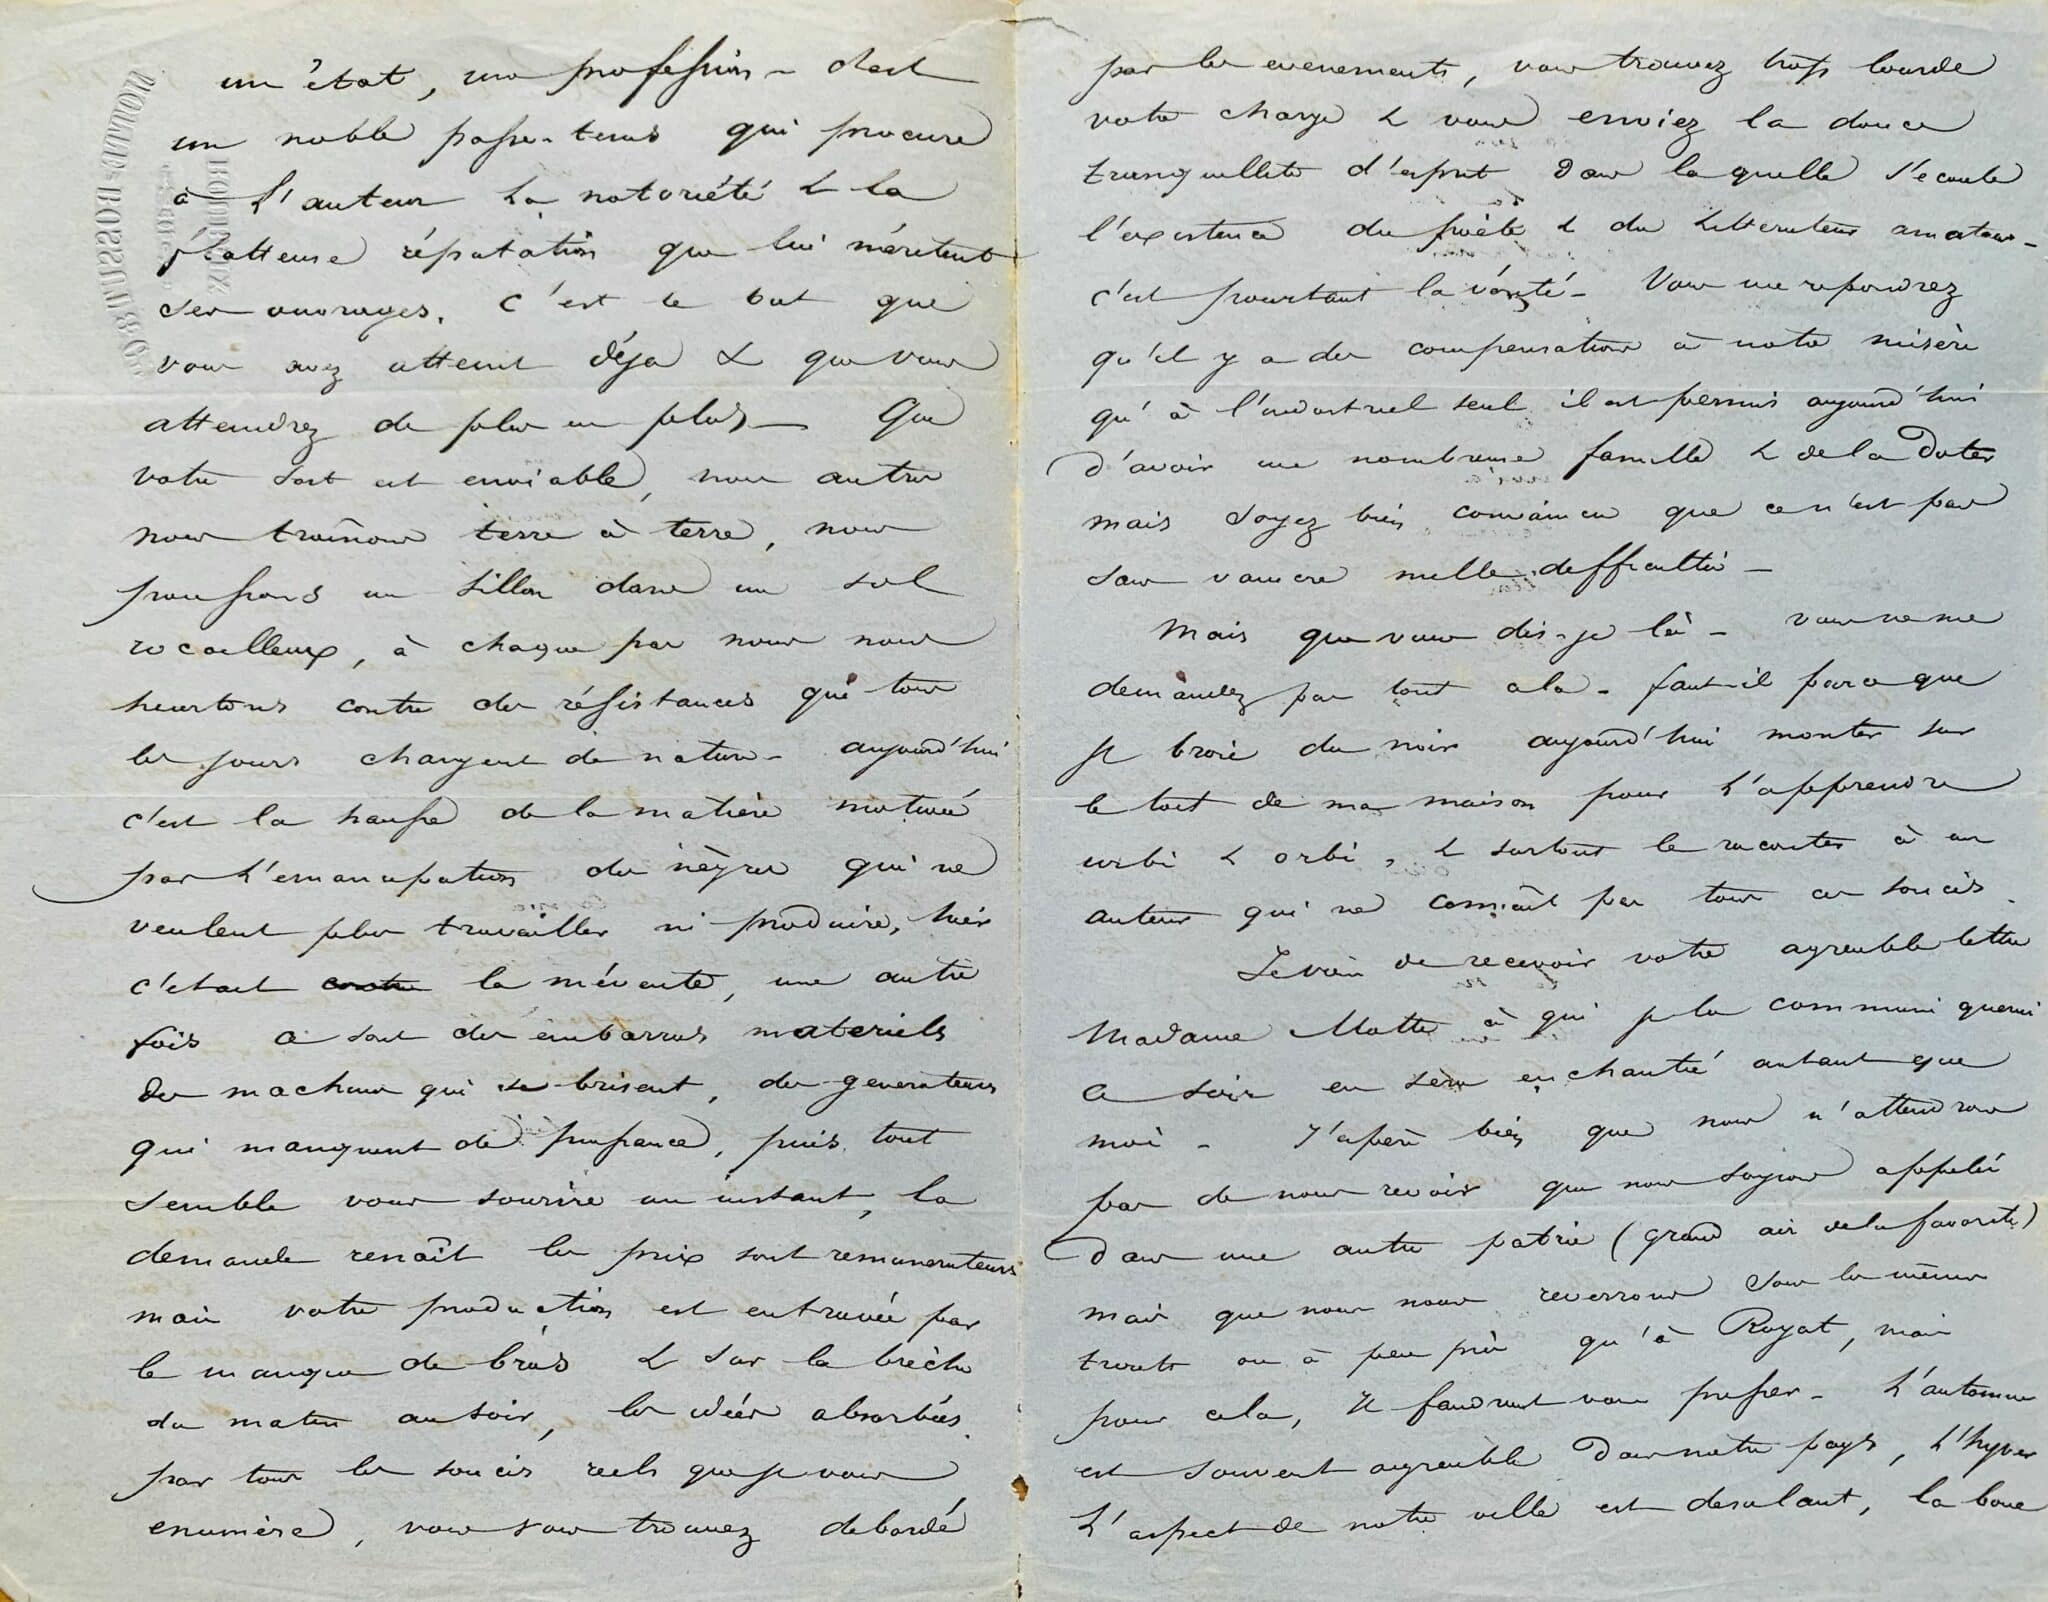 un état, une profession - c'est
un noble passe-tems qui procure
à l'auteur la notoriété & la
flatteuse réputation que lui méritent
ses ouvrages. C'est le but que
vous avez atteint déja & que vous
atteindrez de plus en plus - Que
votre sort est enviable, nous autres
nous traînons terre à terre, nous
poussons un sillon dans un sol
rocailleux, à chaque pas nous nous
heurtons contre des résistances qui tous
les jours changent de nature - aujourd'hui
c'est la hausse de la matière motivée
par l'emancipation des nègres qui ne
veulent plus travailler ni produire, hier
c'etait contre la mévente, une autre
fois ce sont des embarras materiels
des machines qui se brisent, des generateurs
qui manquent de puissance, puis tout
semble vous sourire un instant, la
demande renaît les prix sont remunerateurs
mais votre production est entravée par
le manque de bras & sur la brèche
du matin au soir, les idées absorbées
par tous les soucis reels que je vous
enumère, vous vous trouvez debordé
par les evenements, vous trouvez trop lourde
votre charge & vous enviez la douce
tranquillité d'esprit dans laquelle s'ecoule
l'existence du poëte & du litterateur amateur -
c'est pourtant la vérité - Vous me repondrez
qu'il y a des compensations à notre misère
qu' à l'industriel seul il est permis aujourd'hui
d'avoir une nombreuse famille & de la doter
mais soyez bien convaincu que ce n'est pas
sans vaincre mille difficultés -
Mais que vous dis-je là - vous ne me
demandez pas tout cela - faut-il parce que
je broie du noir aujourd'hui monter sur
le toit de ma maison pour l'apprendre
urbi & orbi, & surtout le raconter à un
auteur qui ne connaît pas tous ces soucis.
Je viens de recevoir votre agreable lettre
Madame Motte à qui je la communiquerai
ce soir en sera enchantée autant que
moi - J'espère bien que nous n'attendrons
pas de nous revoir que nous soyons appelés
dans une autre patrie (grand air de la favorite)
mais que nous nous reverrons sous les mêmes
traits ou à peu près qu'à Royat, mais
pour cela, il faudrait vous presser - L'automne
est souvent agreable dans notre pays, l'hyver
l'aspect de notre ville est desolant, la boue